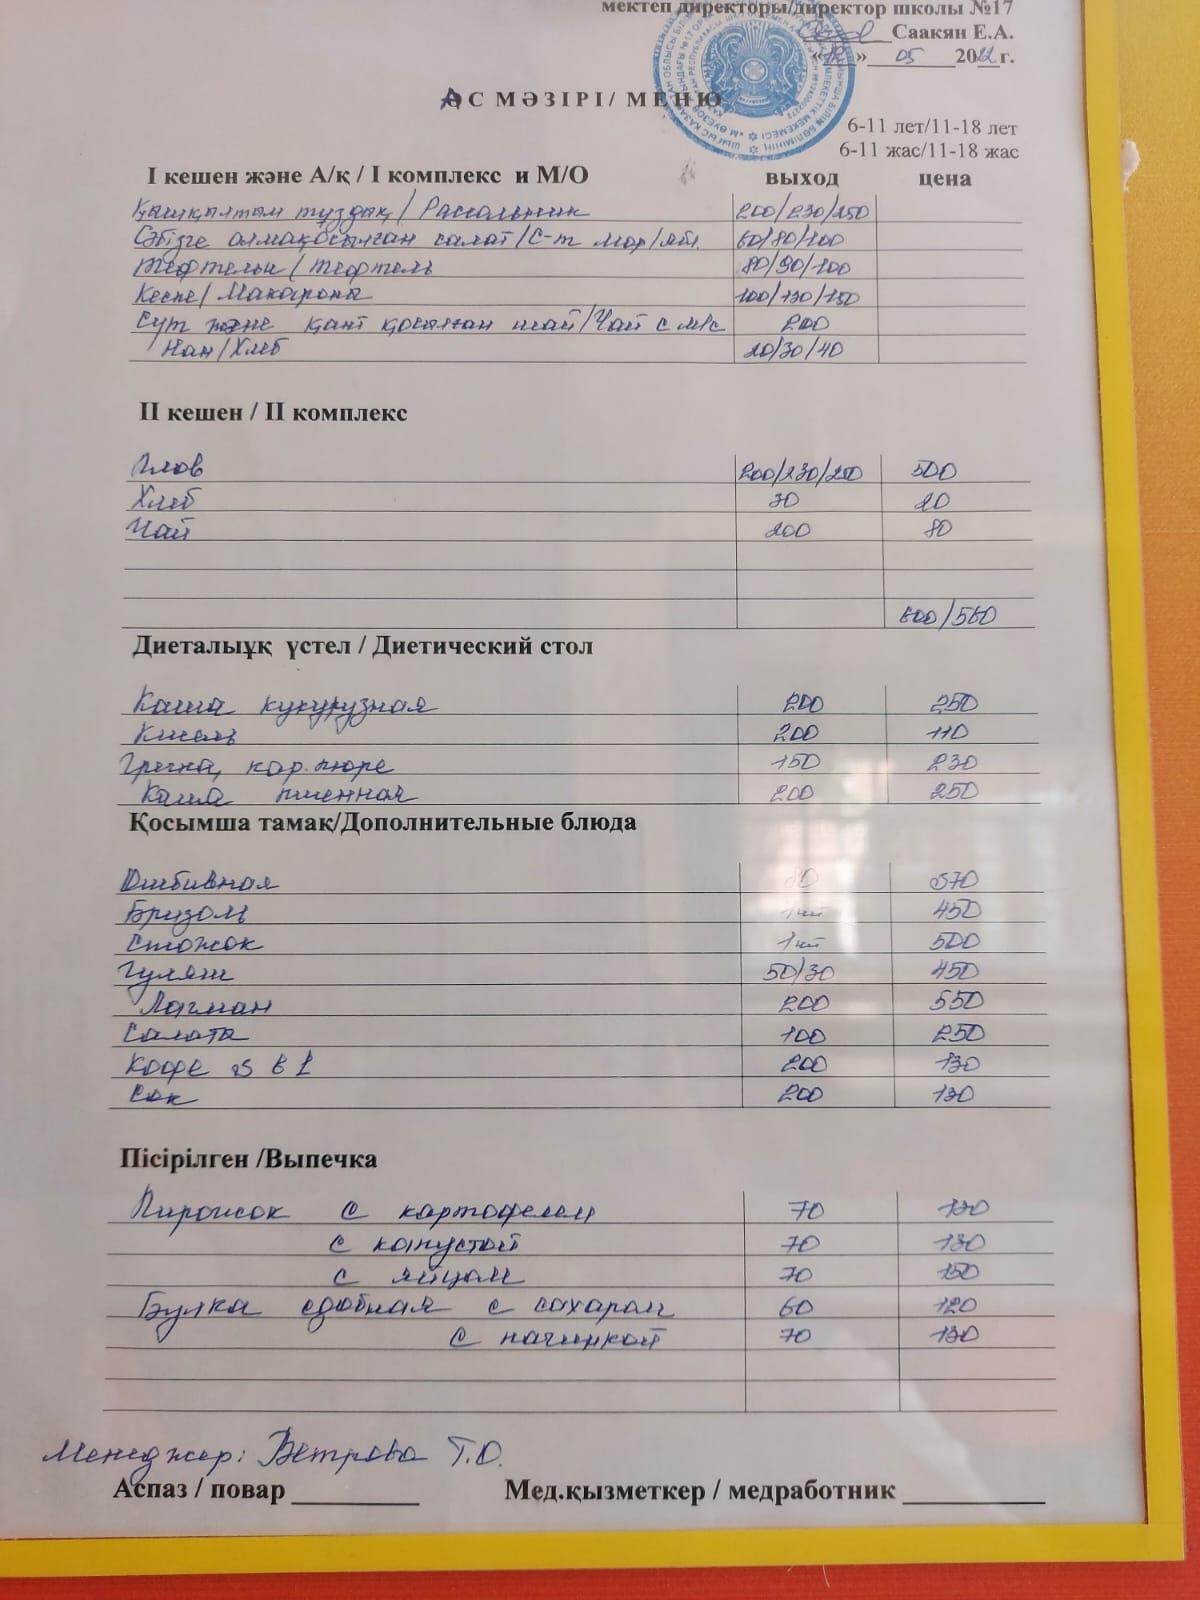 мектеп директоры/директор школы №17
Саакян Е.А.
«12» 05 2022 г.
АС МӘЗІРІ/ МЕНЮ
6-11 лет/11-18 лет
6-11 жас/11-18 жас
І кешен және А/қ / І комплекс и М/О выход цена
Қышқылтым тұздық/Рассольник 200/230/250
Сәбізге алма қосылған салат/С-т мор/ябл. 60/80/100
Тефтелы/Тефтель 80/90/100
Кеспе/Макароны 100/130/150
Сүт және қант қосылған шай/Чай с м/с 200
Нан/Хлеб 20/30/40
ІІ кешен / ІІ комплекс
Плов 200/230/250 500
Хлеб 30 20
Чай 200 80
600/560
Диеталыұқ үстел / Диетический стол
Каша кукурузная 200 250
Кисель 200 110
Гречка, кар.пюре 150 230
Каша пшенная 200 250
Қосымша тамақ/Дополнительные блюда
Отбивная 80 570
Бризоль 1шт 450
Стожок 1шт 500
Гуляш 50/30 450
Лагман 200 550
Салаты 100 250
Кофе 3 в 1 200 130
Сок 200 130
Пісірілген /Выпечка
Пирожок с картофелем 70 130
с капустой 70 130
с яйцом 70 150
Булка сдобная с сахаром 60 120
с начинкой 70 130
Менеджер: Ветрова Т.О.
Аспаз / повар Мед.қызметкер / медработник